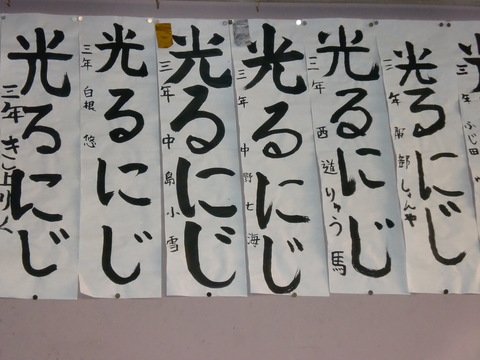 光るにじ
三年
光るにじ
三年 白根 悠
光るにじ
三年 中島小雪
光るにじ
三年 中野七海
光るにじ
三年 西 道りゅう馬
光るにじ
三年 服部しゅんや
三年 ふじ田